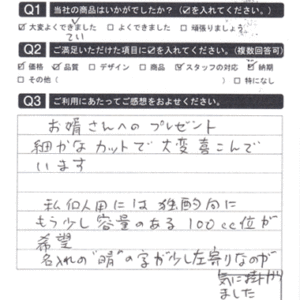 Q1 当社の商品はいかがでしたか?(☑を入れてください。)
☑大変よくできました □よくできました □頑張りましょう
Q2 ご満足いただけた項目に☑を入れてください。(複数回答可)
☑価格 ☑品質 □デザイン □商品 ☑スタッフの対応 ☑納期
□その他( ) □特になし
Q3 ご利用にあたってご感想をおよせください。
お婿さんへのプレゼント
細かなカットで大変喜こんで
います
私個人用には独酌向に
もう少し容量のある100cc位が
希望
名入れの"晴"の字が少し左寄りなのが
気に掛かり
ました